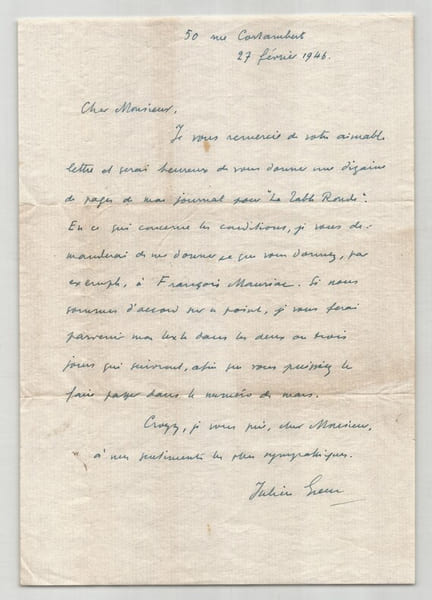 50 rue Cortambert
27 février 1946.
Cher Monsieur,
Je vous remercie de votre aimable
lettre et serai heureux de vous donner une dizaine
de pages de mon journal pour "La Table Ronde".
En ce qui concerne les conditions, je vous de-
manderai de me donner ce que vous donnez, par
exemple, à François Mauriac. Si nous
sommes d'accord sur ce point, je vous ferai
parvenir mon texte dans les deux ou trois
jours qui suivront, afin que vous puissiez le
faire passer dans le numéro de mars.
Croyez, je vous prie, cher Monsieur,
à mes sentiments les plus sympathiques.
Julien Green